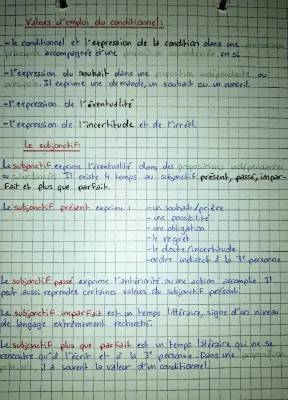 Valeurs d'emploi du conditionnel:
-le conditionnel et l'expression de la condition dans une proposition
principale accompagnée d'une proposition subordonnée en si
-l'expression du souhait dans une proposition indépendante ou
principale. Il exprime une demande, un souhait ou un conseil.
-l'expression de l'éventualité
-l'expression de l'incertitude et de l'irréel.
Le subjonctif:
Le subjonctif exprime l'éventualité dans des propositions indépendantes
ou subordonnées. Il existe 4 temps au subjonctif présent, passé, impar-
fait et plus que parfait.
Le subjonctif présent exprime: -un souhait/prière
-une possibilité
-une obligation
-le regret
-le doute/incertitude
-ordre indirect à la 3e personne
Le subjonctif passé exprime l'antériorité ou une action accomplie. Il
peut aussi reprendre certaines valeurs du subjonctif présent.
Le subjonctif imparfait est un temps littéraire, signe d'un niveau
de langage extrêmement recherché.
Le subjonctif plus que parfait est un temps littéraire qui ne se
rencontre qu'à l'écrit et à la 3e personne. Dans une proposition
il a souvent la valeur d'un conditionnel.